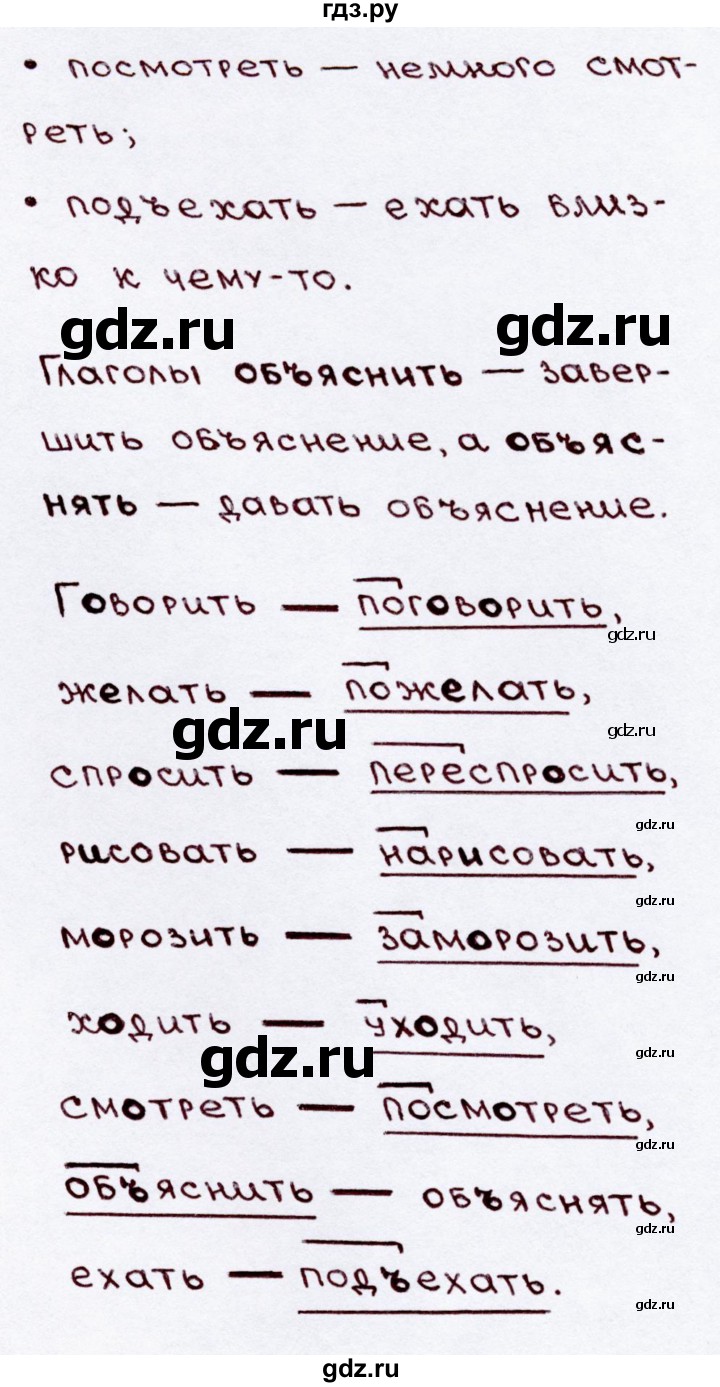 гдз.ру
• посмотреть — немного смот-
реть;
• подъехать — ехать близ-
ко к чему-то.
gdz.ru gdz.ru
Глаголы объяснить — завер-
шить объяснение, а объяс-
нять — давать объяснение.
Говорить — поговорить,
gdz.ru
желать — пожелать,
gdz.ru gdz.ru
спросить — переспросить,
gdz.ru
рисовать — нарисовать,
gdz.ru
морозить — заморозить,
gdz.ru
ходить — уходить,
gdz.ru gdz.ru
смотреть — посмотреть,
gdz.ru
объяснить — объяснять,
gdz.ru
ехать — подъехать.
gdz.ru
gdz.ru